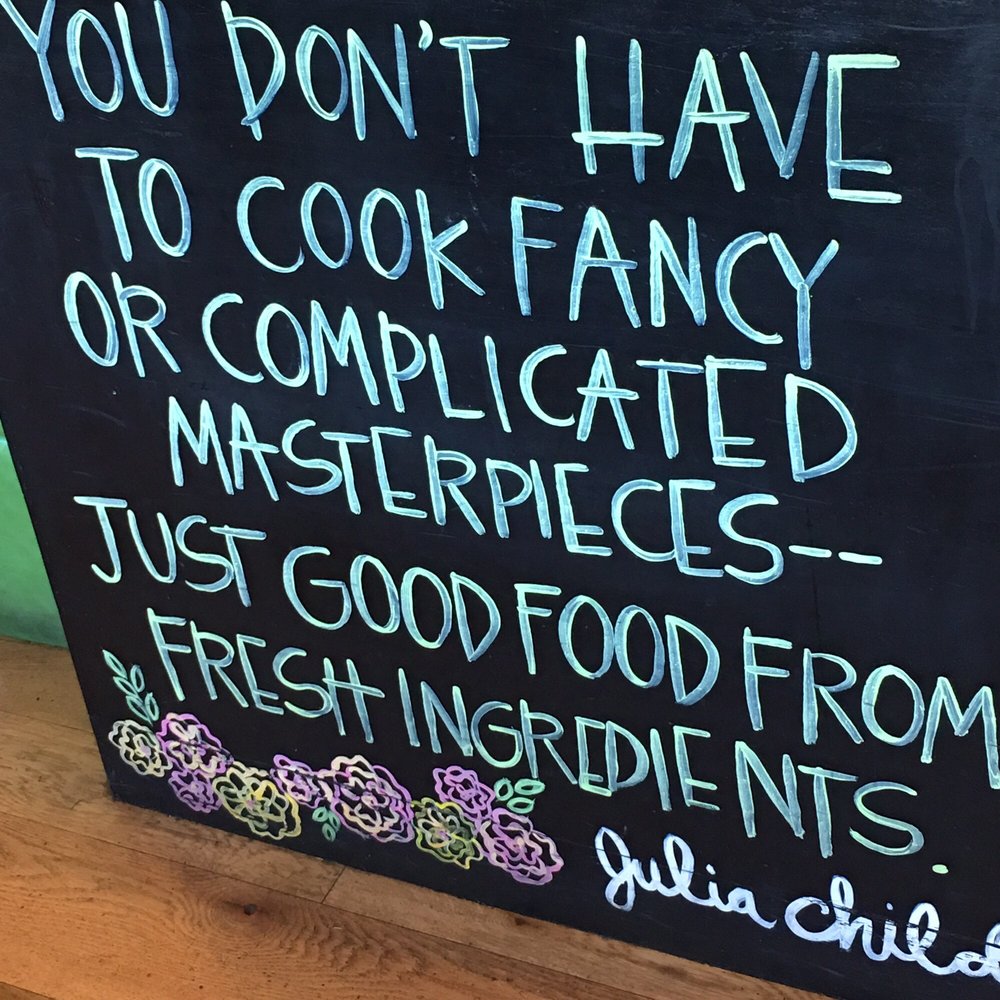 YOU DON'T HAVE
TO COOK FANCY
OR COMPLICATED
MASTERPIECES--
JUST GOOD FOOD FROM
FRESH INGREDIENTS.
Julia Child